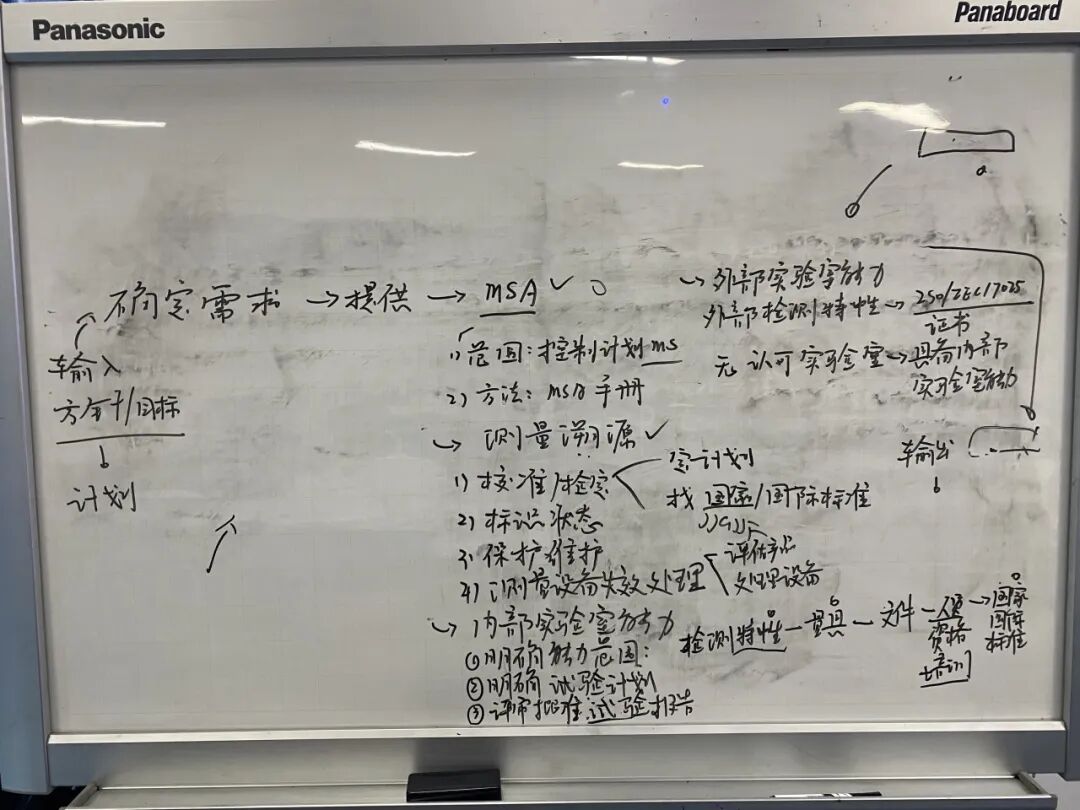 Panasonic
Panaboard
确定需求 → 提供 → MSA ✓
输入
方针/目标
计划
1) 范围：控制计划MS
2) 方法：MSA手册
→ 测量溯源 ✓
1) 校准/检定
定计划
找 国家/国际标准
JJG
2) 标识状态
3) 保护维护
4) 测量设备失效处理
评估产品
处理设备
→ 内部实验室能力
① 明确能力范围：
② 明确试验计划
③ 评审批准试验报告
→ 外部实验室能力
外部检测特性 → ISO/IEC17025
证书
无认可实验室 → 具备内部
实验室能力
输出
检测特性 — 量具 — 文件 — 人员
资格
培训
→ 国家
国际
标准